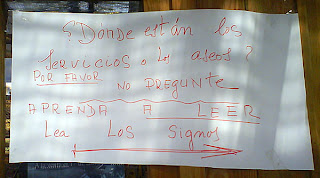 ¿Dónde están los
Servicios o los aseos?
POR FAVOR NO PREGUNTE
APRENDA A LEER
Lea LOS Signos